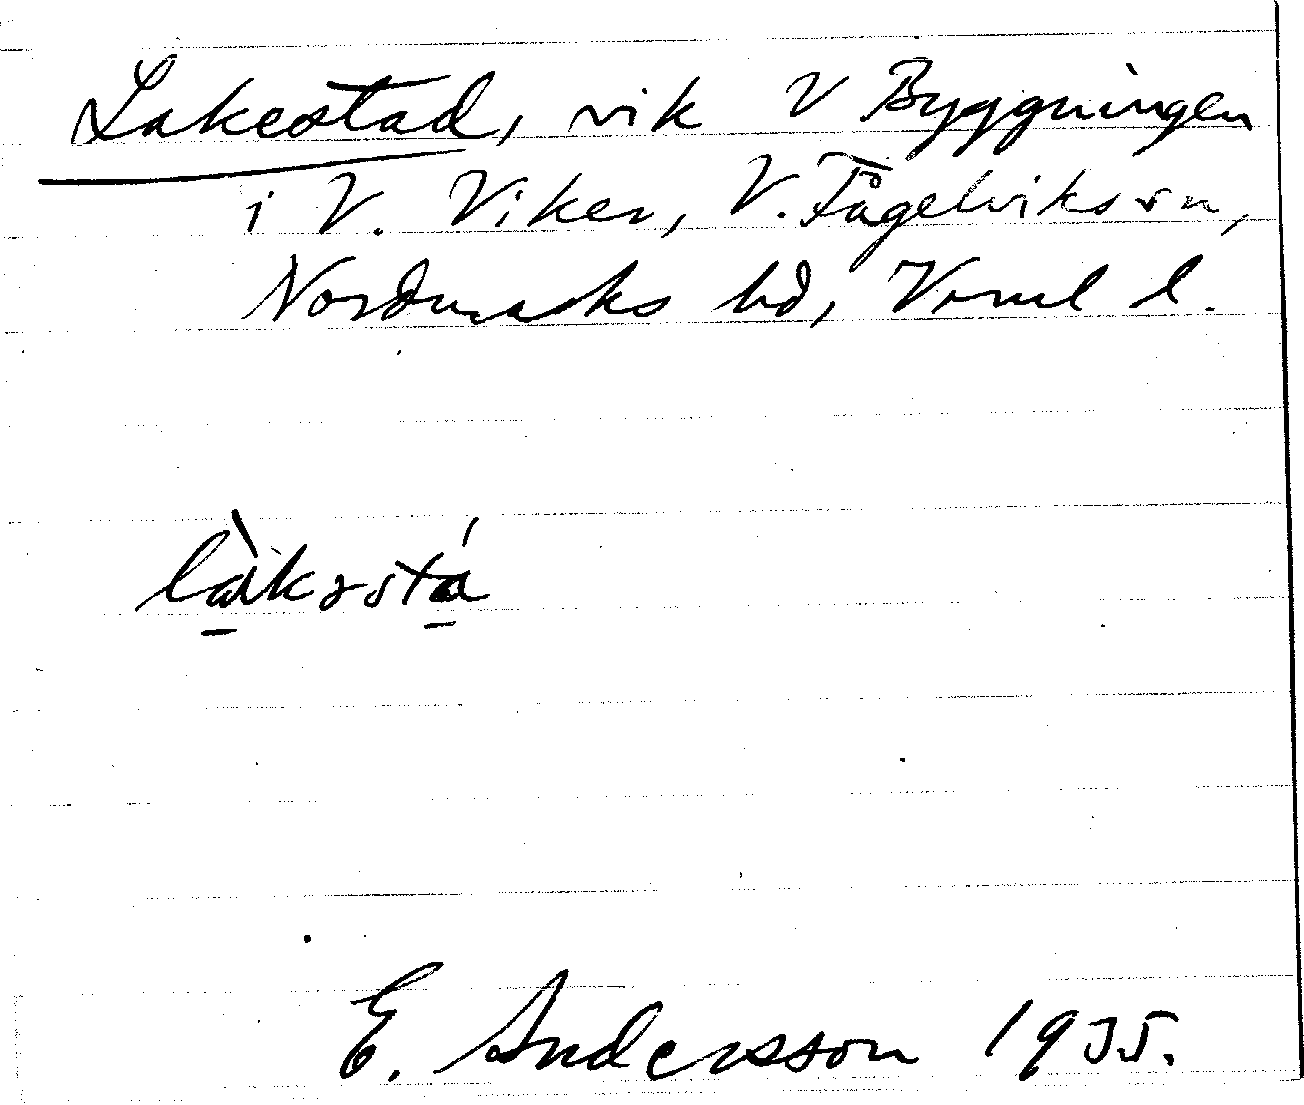 Lakestad, vik V Byggningen
i V. Viker, V. Fågelviks sn,
Nordmarks hd, Vrml l.
E. Andersson 1935.